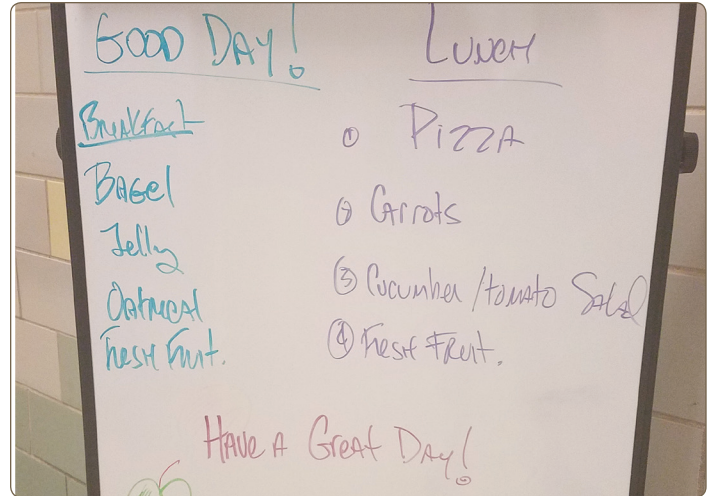 GOOD DAY!
Breakfast
Bagel
Jelly
Oatmeal
Fresh Fruit.
LUNCH
① Pizza
② Carrots
③ Cucumber/tomato Salad
④ Fresh Fruit.
Have a Great Day!